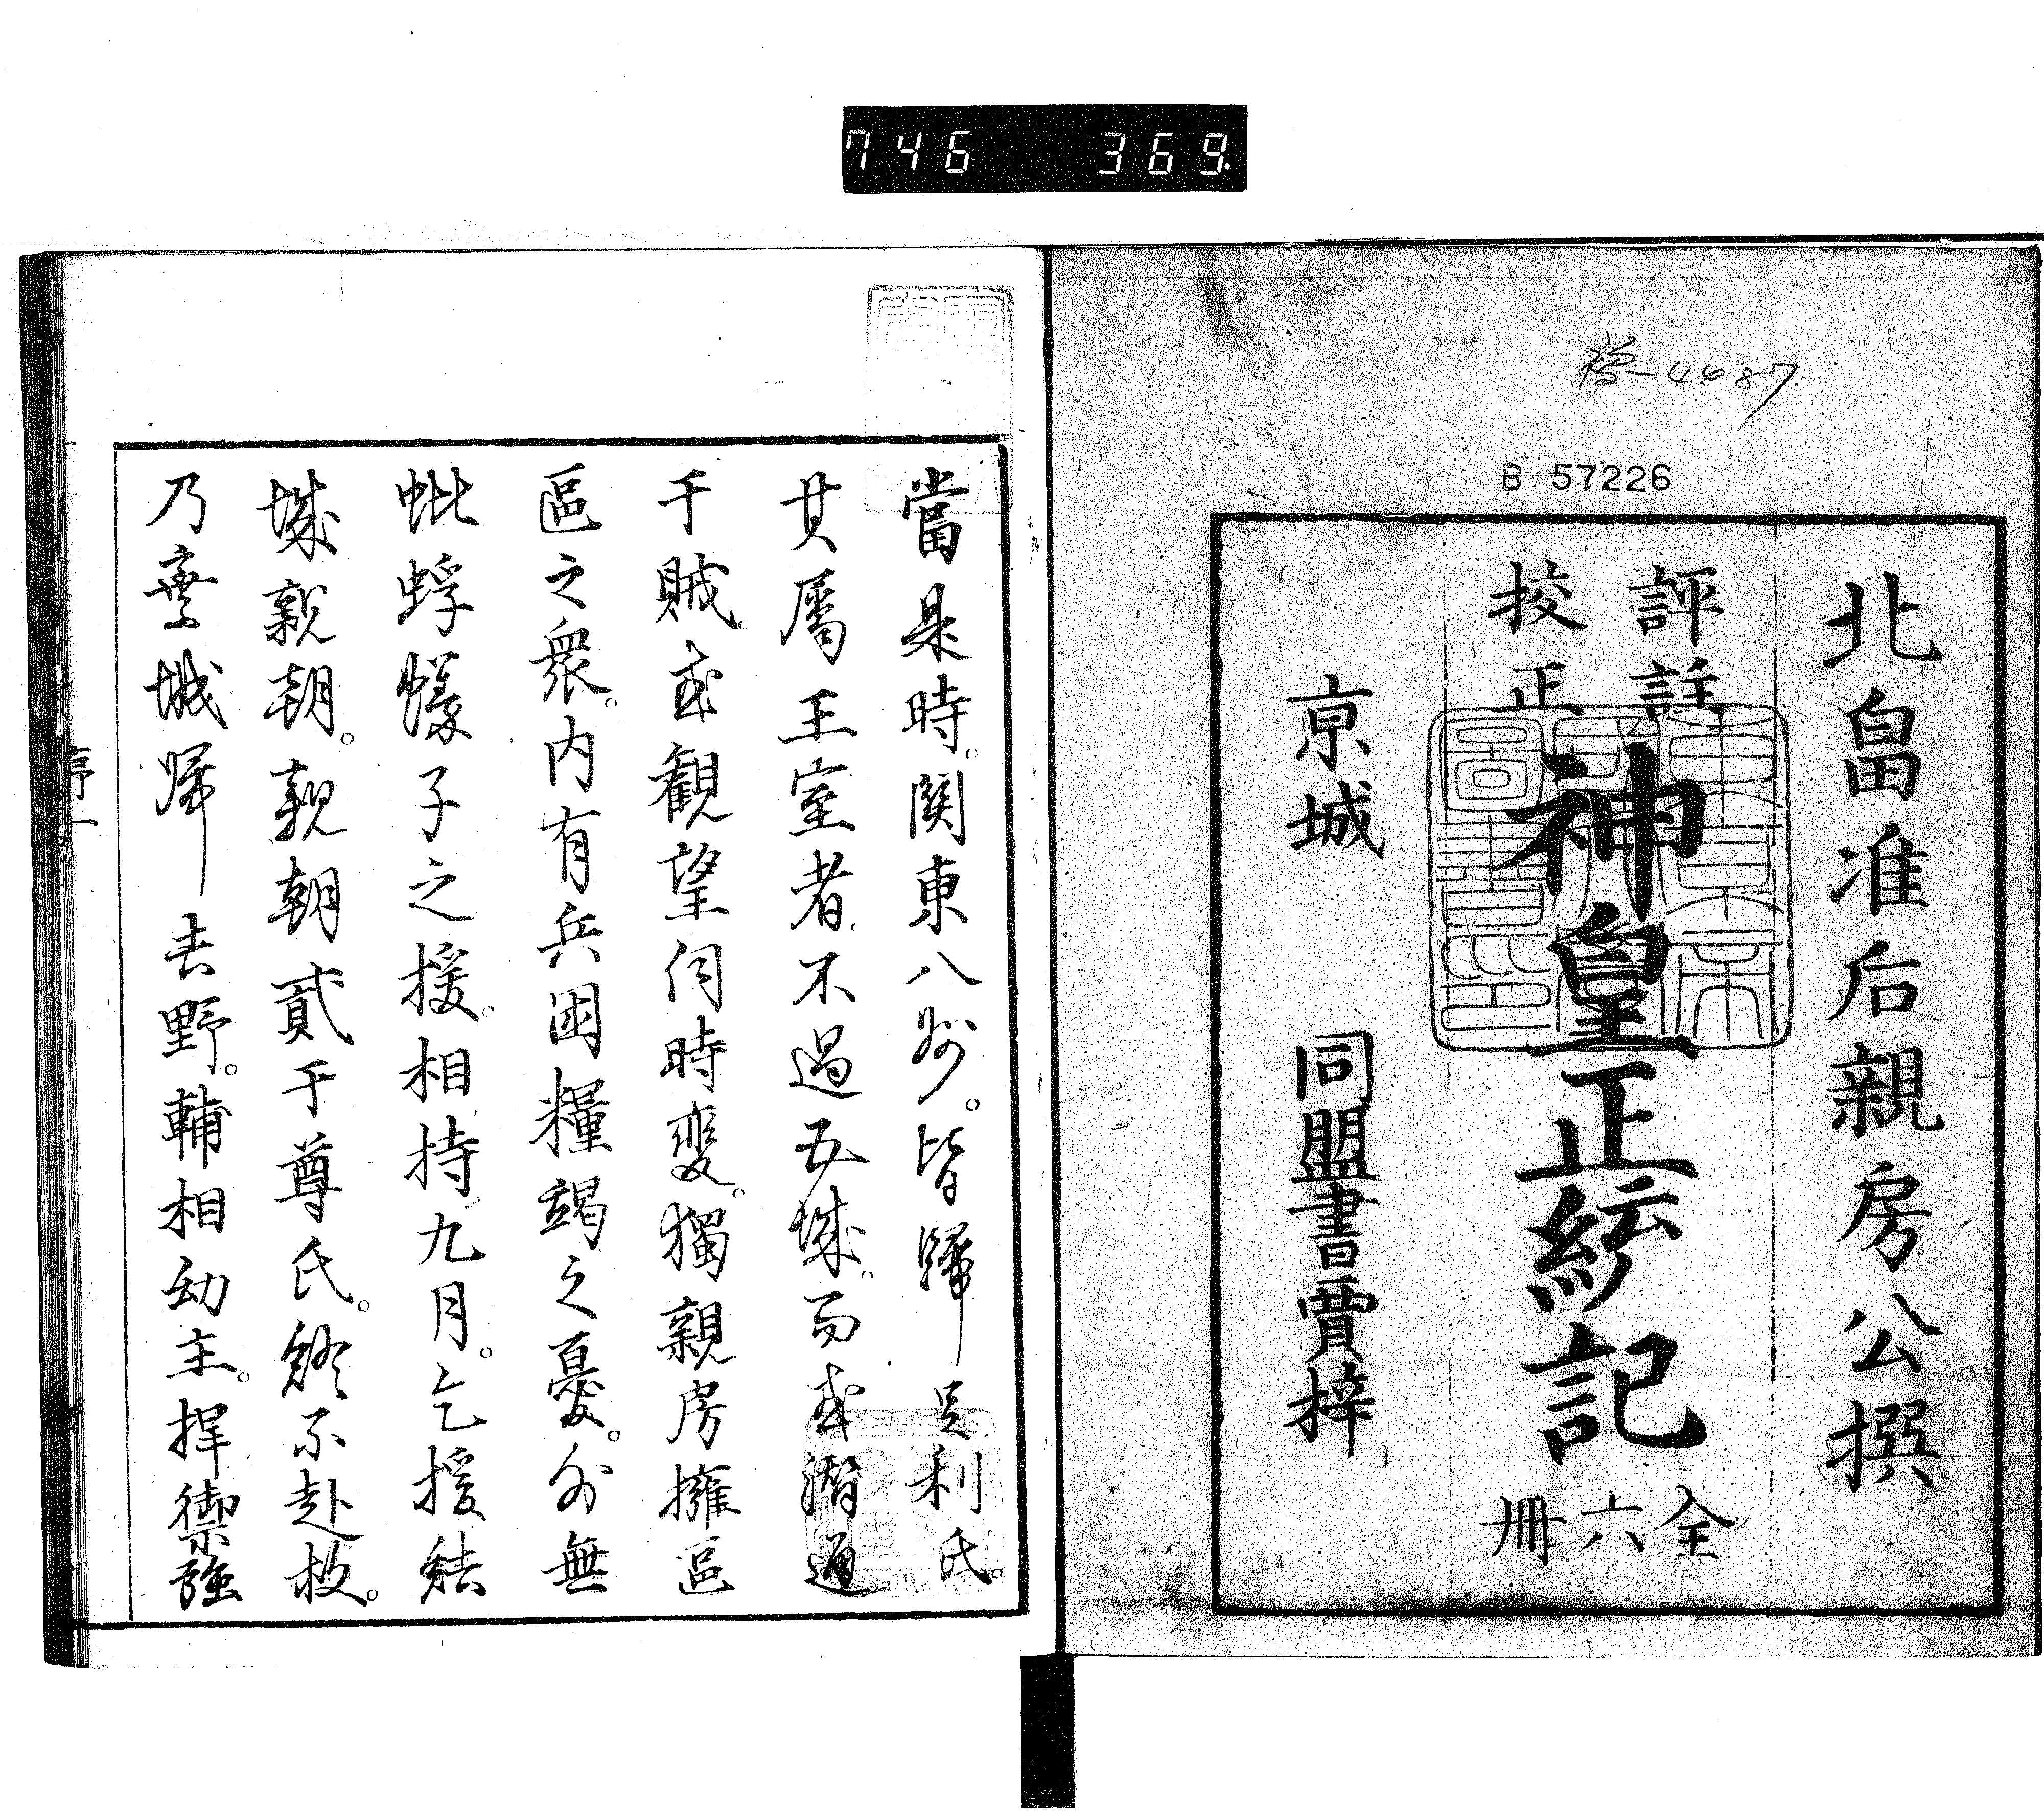 746 369.
稾-4687
B 57226
北畠准后親房公撰
評註
校正
神皇正統記
全六冊
京城 同盟書賈梓
當是時。関東八州。皆歸足利氏。
其属王室者。不過五城。而或潜通
于賊。或観望伺時変。獨親房擁區
區之衆。内有兵困糧竭之憂。外無
蚍蜉蟻子之援。相持九月。乞援結
城親朝。親朝貳于尊氏。終不赴救。
乃棄城歸吉野。輔相幼主。捍禦強
序一